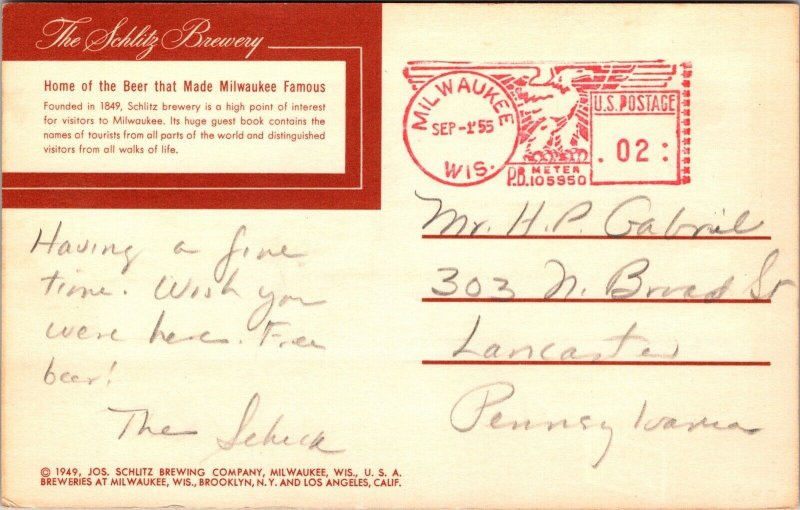 The Schlitz Brewery
Home of the Beer that Made Milwaukee Famous
Founded in 1849, Schlitz brewery is a high point of interest
for visitors to Milwaukee. Its huge guest book contains the
names of tourists from all parts of the world and distinguished
visitors from all walks of life.
MILWAUKEE
SEP -1'55
WIS.
U.S. POSTAGE
.02:
METER
P.B. 105950
Having a fine
time. Wish you
were here. Free
beer!
The
Mr. H. P. Gabriel
303 N. Broad St
Lancaster
Pennsylvania
© 1949, JOS. SCHLITZ BREWING COMPANY, MILWAUKEE, WIS., U. S. A.
BREWERIES AT MILWAUKEE, WIS., BROOKLYN, N.Y. AND LOS ANGELES, CALIF.